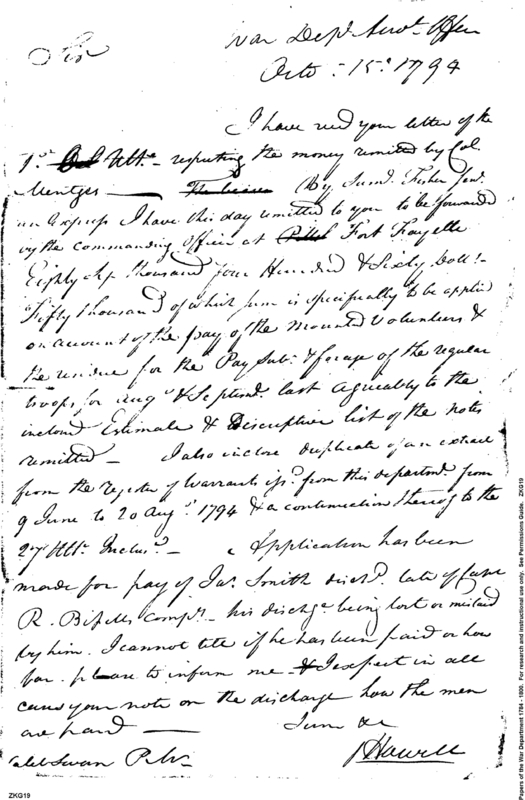 War Dept. Acwt. Office
Octo. 15th 1794
Sir
I have recd your letter of the
1st Ulto. respecting the money remitted by Col.
Mentges By Saml. Fisher Senr.
an Express I have this day remitted to you to be forwarded
by the commanding Officer at Fort Fayette
Eighty Six thousand four Hundred & Sixty Doll.
Fifty thousand of which sum is specifically to be applied
on account of the pay of the Mounted Volunteers &
the residue for the Pay Sub. & forage of the regular
troops for Augt & Septemr. last agreeably to the
inclosed Estimate & Descriptive list of the notes
remitted - I also inclose duplicate of an extract
from the register of Warrants issd. from this departmt. from
9 June to 20 Augt. 1794 & a continuation thereof to the
27 Ulto. Inclusv. - Application has been
made for pay of Jas. Smith dischd. late of Capt
R. Bissells Compy. - his dischge. being lost or mislaid
by him. I cannot tell if he has been paid or how
far. please to inform me - & I expect in all
cases your note on the discharge how the men
are paid - I am &c
Caleb Swan P.Mr
J Howell
ZKG19
Papers of the War Department 1784 - 1800. For research and instructional use only. See Permissions Guide. ZKG19